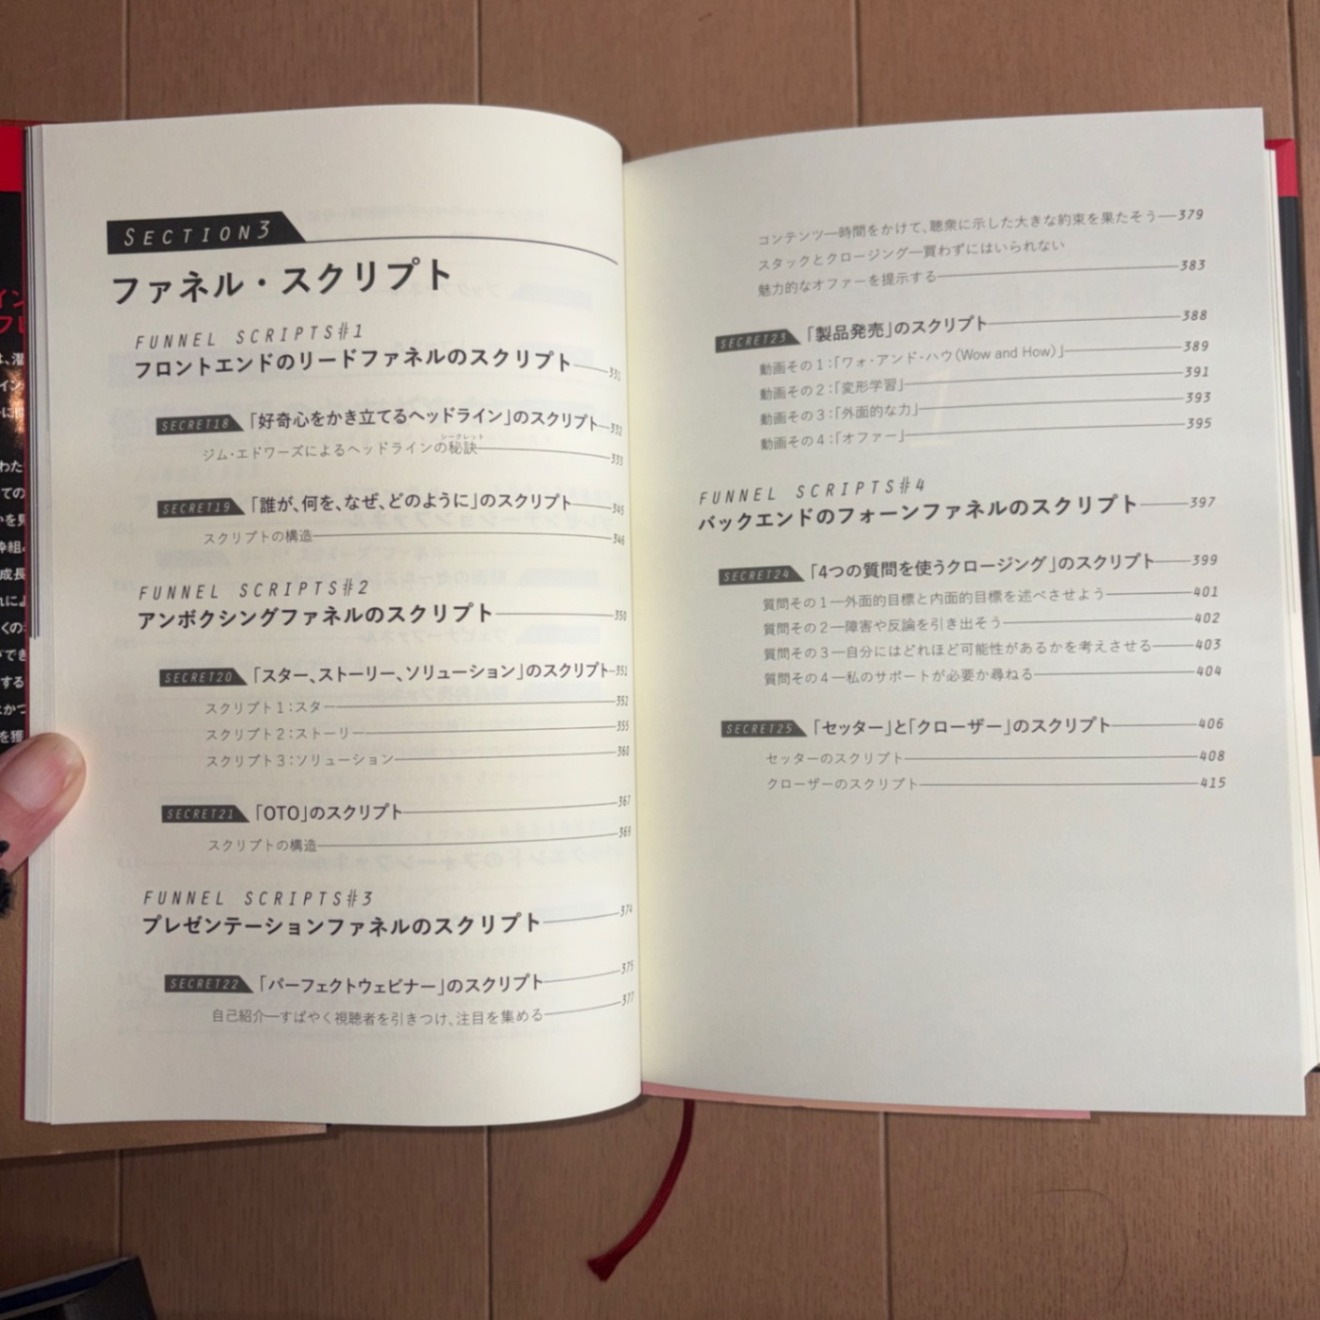 SECTION3
ファネル・スクリプト
FUNNEL SCRIPTS#1
フロントエンドのリードファネルのスクリプト 331
SECRET18 「好奇心をかき立てるヘッドライン」のスクリプト 332
ジム・エドワーズによるヘッドラインの秘訣 333
シークレット
SECRET19 「誰が、何を、なぜ、どのように」のスクリプト 345
スクリプトの構造 346
FUNNEL SCRIPTS#2
アンボクシングファネルのスクリプト 350
SECRET20 「スター、ストーリー、ソリューション」のスクリプト 351
スクリプト1：スター 352
スクリプト2：ストーリー 355
スクリプト3：ソリューション 360
SECRET21 「OTO」のスクリプト 367
スクリプトの構造 369
FUNNEL SCRIPTS#3
プレゼンテーションファネルのスクリプト 374
SECRET22 「パーフェクトウェビナー」のスクリプト 375
自己紹介―すばやく視聴者を引きつけ、注目を集める 377
コンテンツ―時間をかけて、聴衆に示した大きな約束を果たそう 379
スタックとクロージング―買わずにはいられない
魅力的なオファーを提示する 383
SECRET23 「製品発売」のスクリプト 388
動画その1：「ワォ・アンド・ハウ（Wow and How）」 389
動画その2：「変形学習」 391
動画その3：「外面的な力」 393
動画その4：「オファー」 395
FUNNEL SCRIPTS#4
バックエンドのフォーンファネルのスクリプト 397
SECRET24 「4つの質問を使うクロージング」のスクリプト 399
質問その1―外面的目標と内面的目標を述べさせよう 401
質問その2―障害や反論を引き出そう 402
質問その3―自分にはどれほど可能性があるかを考えさせる 403
質問その4―私のサポートが必要か尋ねる 404
SECRET25 「セッター」と「クローザー」のスクリプト 406
セッターのスクリプト 408
クローザーのスクリプト 415